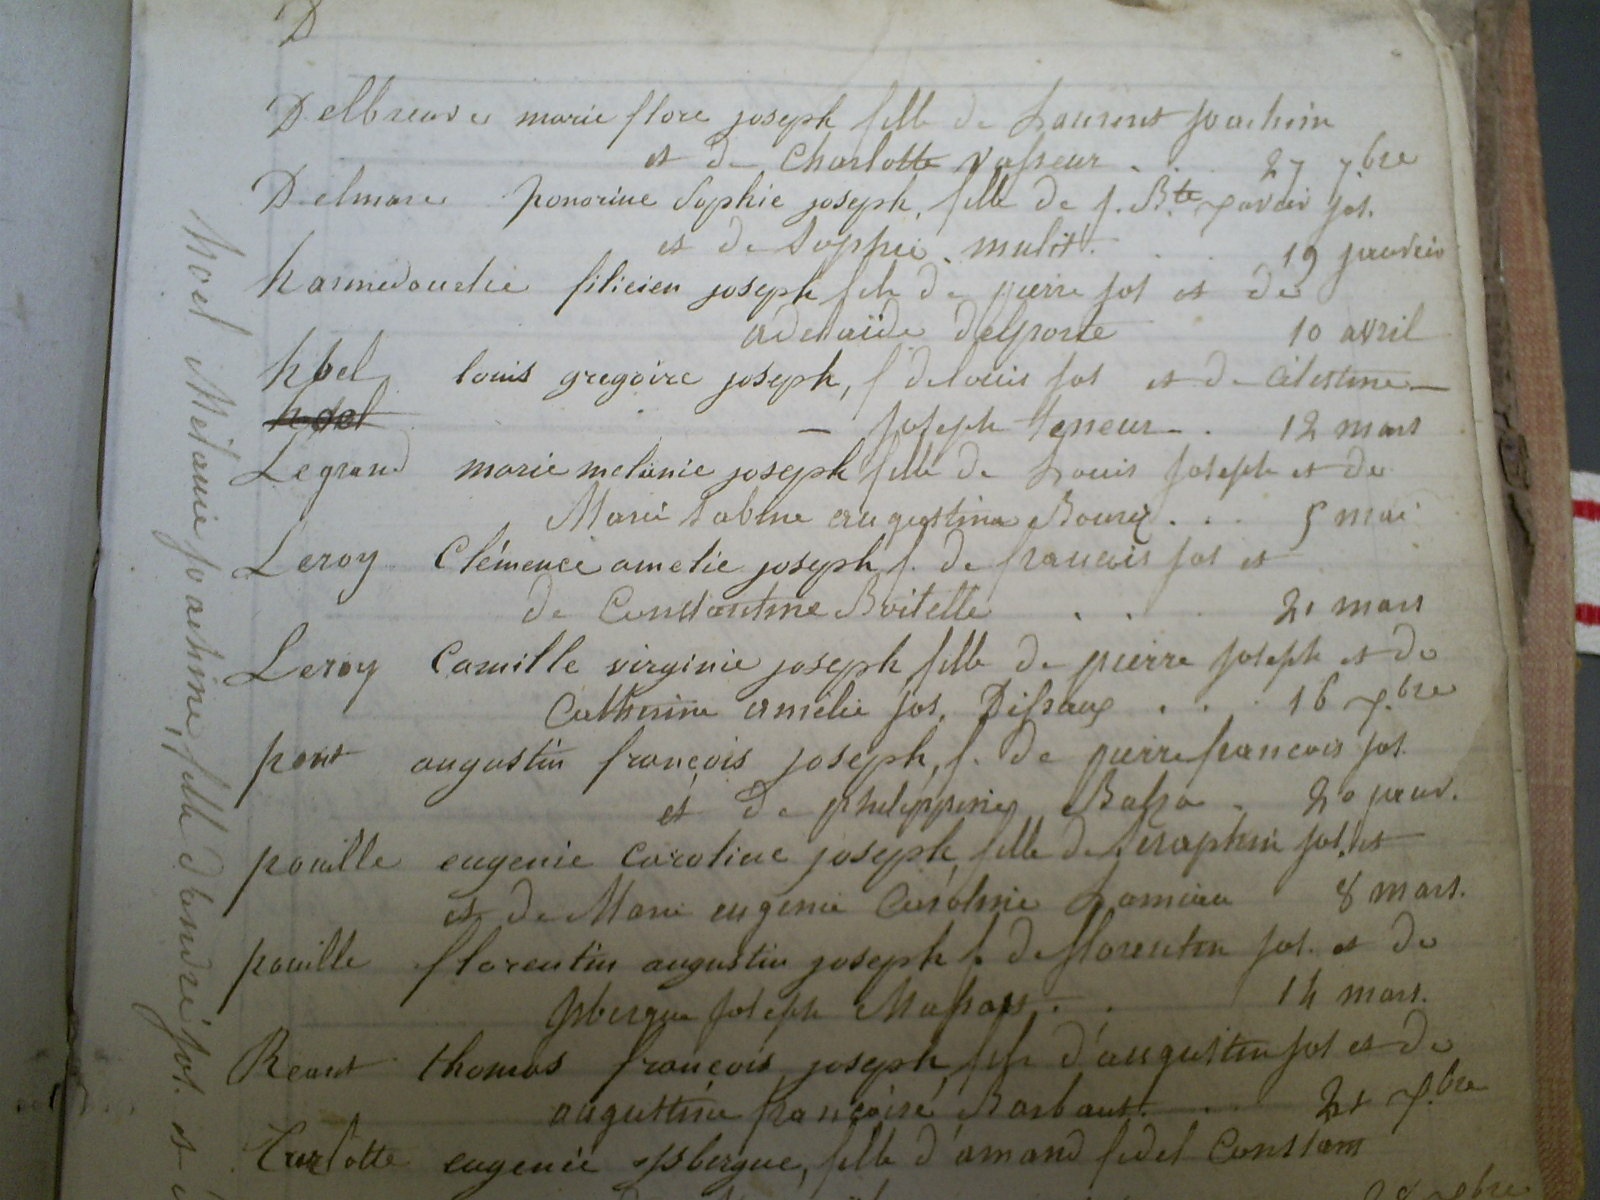 D
Delbreuve marie flore joseph fille de Laurent Joachim
et de Charlotte Vasseur . . 27 7.bre
Delmare honorine Sophie joseph, fille de j. B.te xavier jos.
et de Sophie mulit . . 19 janvier
hannedouche filicien joseph fils de pierre jos et de
adelaïde delporte 10 avril
hoel louis gregoire joseph, f de louis jos et de Célestine —
— joseph teneur . 12 mars
Legrand marie melanie joseph fille de Louis Joseph et de
Marie Sabine augustina Bourg . . . 5 mai
Leroy Clémence amelie joseph f. de francois jos et
de Constantine Boitelle . . . 21 mars
Leroy Camille virginie joseph fille de pierre joseph et de
Catherine amelie jos. Dissaux . . . 16 7.bre
pont augustin françois joseph, f. de pierre francois jos.
et de philippine . 20 janv.
pouille eugenie Caroline joseph, fille de Séraphin jos. et
et de Marie eugenie Caroline 8 mars.
pouille florentin augustin joseph f. de florentin jos. et de
Isbergue joseph . . 14 mars.
thomas françois joseph, fils d'augustin jos et de
augustine françoise Barbaut . . 21
eugenie ysbergue, fille d'amand fidel Constant
hoel Mélanie joachine, fille d'andré jos. et